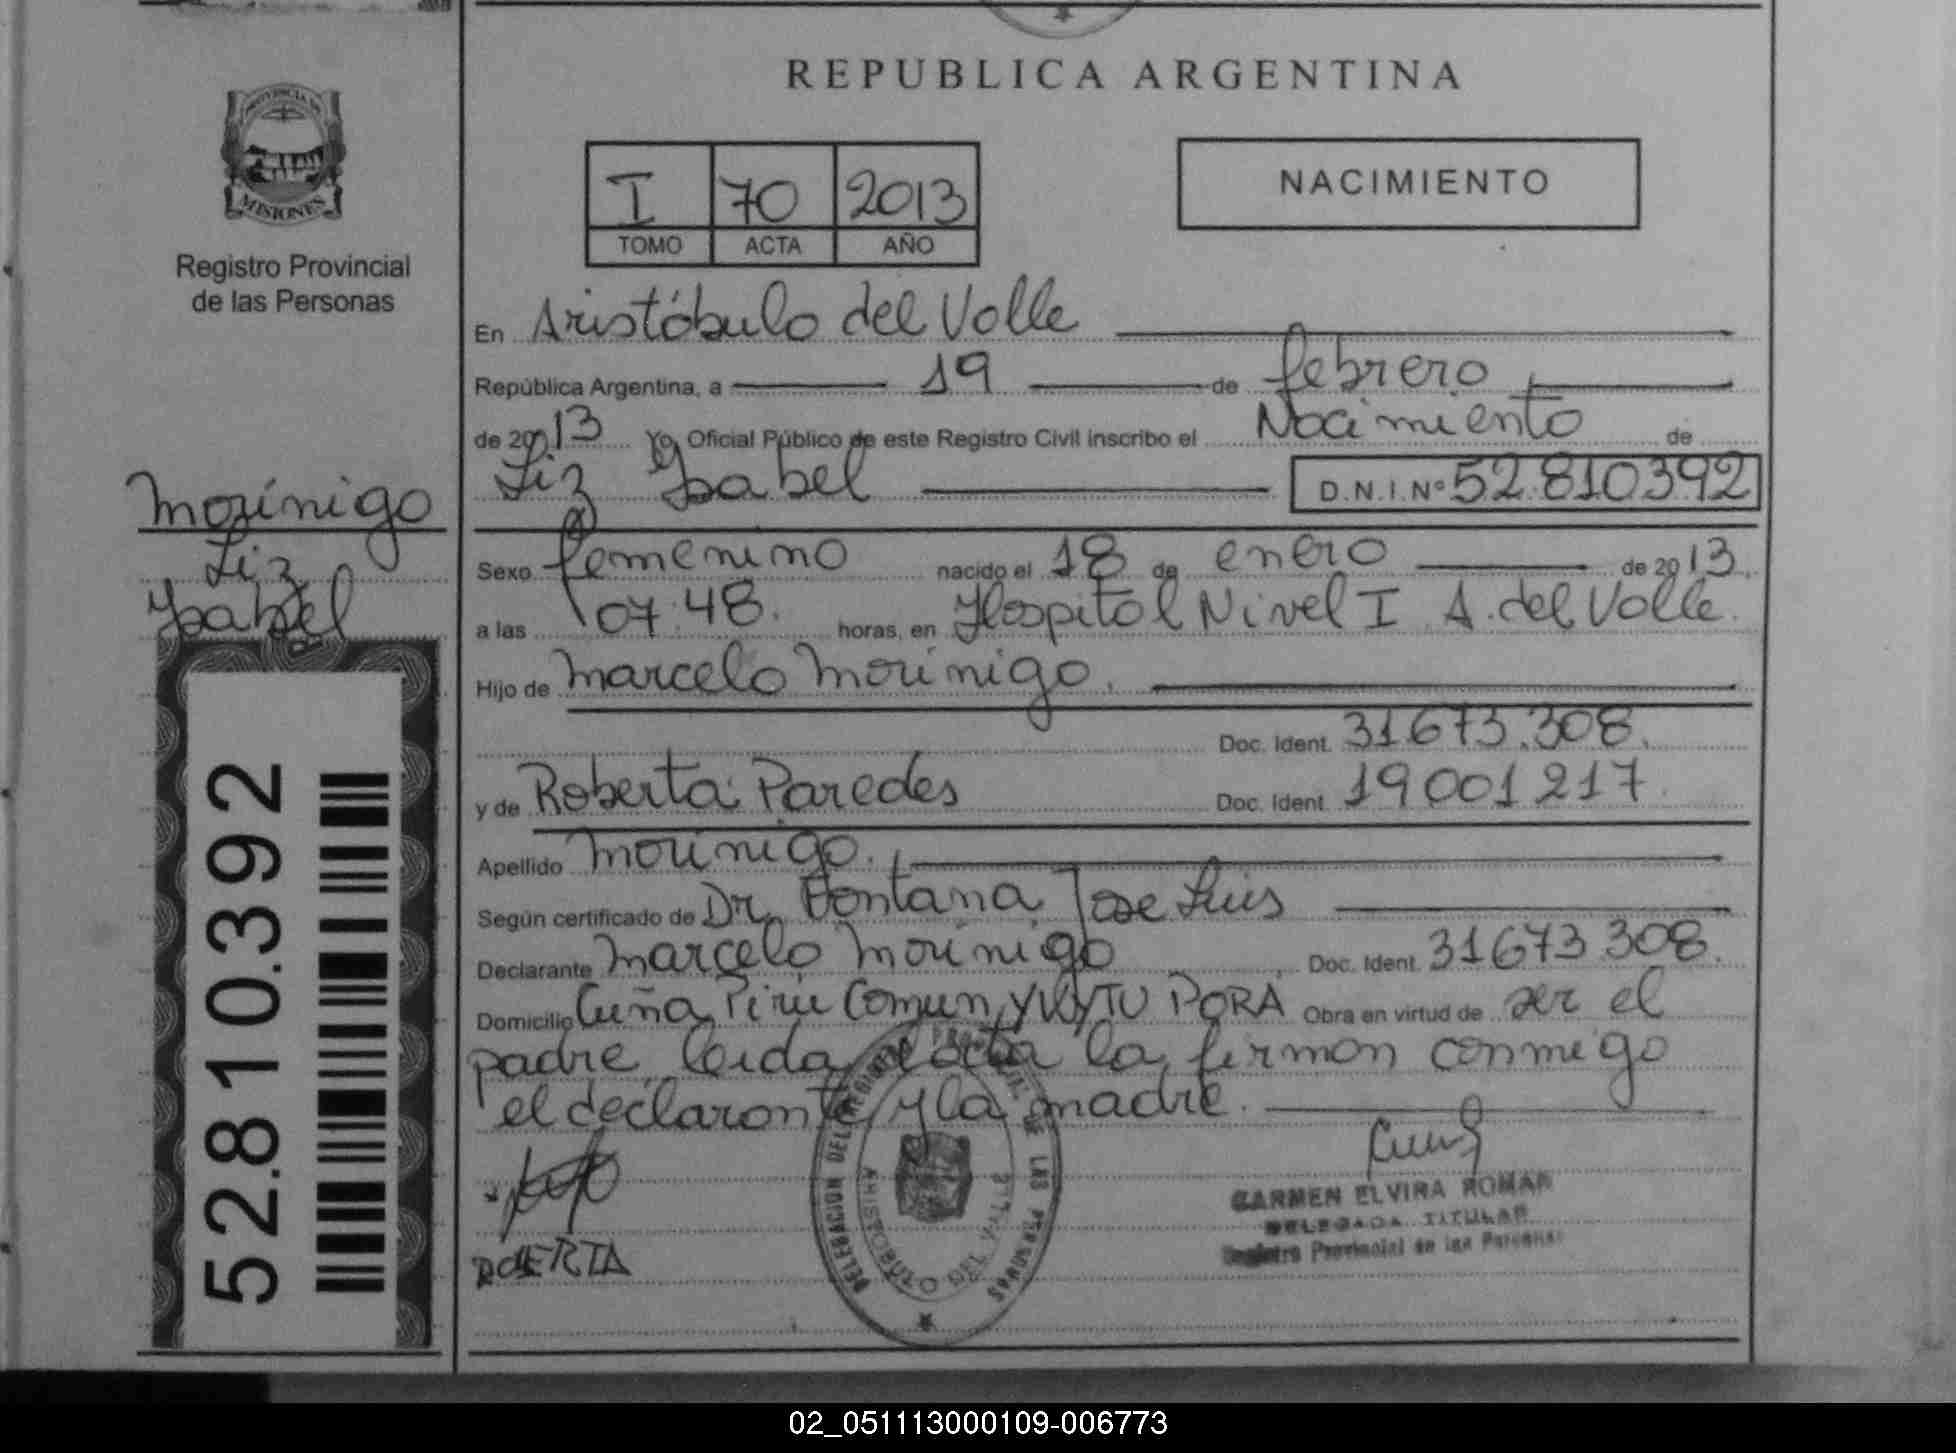 PROVINCIA DE
MISIONES
Registro Provincial
de las Personas
Morínigo
Liz
Ysabel
52.810.392
REPUBLICA ARGENTINA
I 70 2013
TOMO ACTA AÑO
NACIMIENTO
En Aristóbulo del Valle
República Argentina, a 19 de febrero
de 2013 Yo, Oficial Público de este Registro Civil inscribo el Nacimiento de
Liz Ysabel D.N.I.Nº 52.810392
Sexo femenino nacido el 18 de enero de 2013.
a las 07:48. horas, en Hospital Nivel I A. del Valle.
Hijo de Marcelo Morínigo.
Doc. Ident. 31673.308.
y de Roberta Paredes Doc. Ident. 19001217.
Apellido Morínigo.
Según certificado de Dr. Fontana, Jose Luis
Declarante Marcelo Morínigo Doc. Ident. 31673308.
Domicilio Cuña Pirú Comun, YVYTU PORA Obra en virtud de ser el
padre, leída el acta la firman conmigo
el declarante y la madre.
DELEGACION DEL REGISTRO PROVINCIAL DE LAS PERSONAS
ARISTOBULO DEL VALLE
CARMEN ELVIRA ROMAN
DELEGADA TITULAR
Registro Provincial de las Personas
02_051113000109-006773